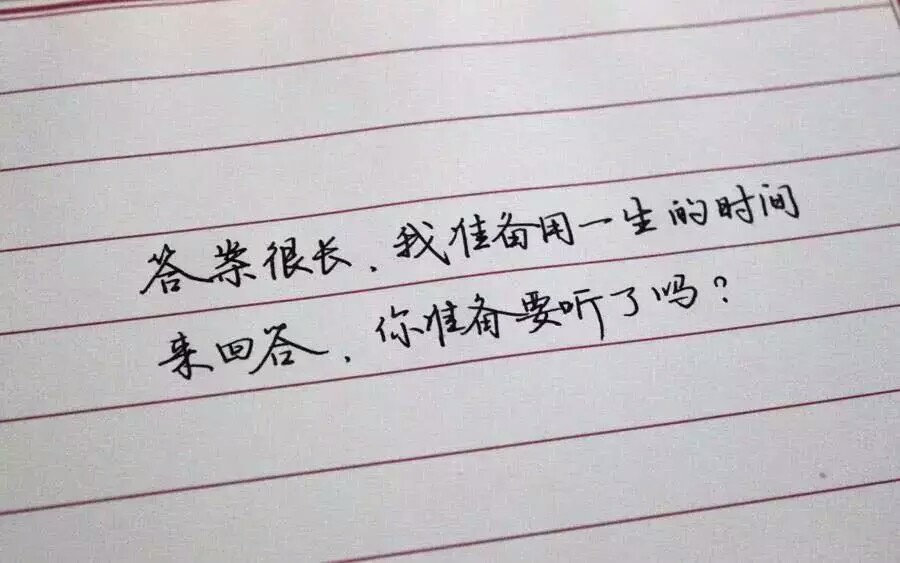 答案很长，我准备用一生的时间
来回答，你准备要听了吗？